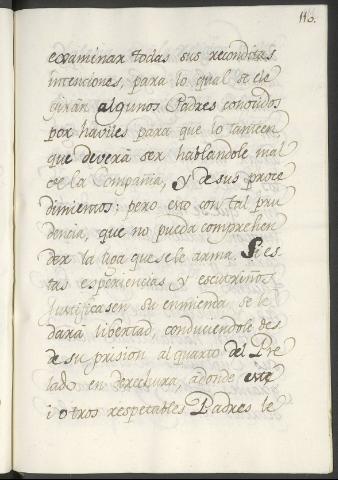 113.
examinar todas sus recónditas
intenciones, para lo qual se ele
girán algunos Padres conocidos
por haviles para que lo tanteen,
que deverá ser hablandole mal
de la Compañia, y de sus proce
dimientos: pero esto con tal pru
dencia, que no pueda comprehen
der la tioa que se le arma. Si es
tas experiencias y escrutinios
justificasen su enmienda se le
dará libertad, conduciendole des
de su prision al quarto del Pre
lado en derechura, adonde este
i otros respetables Padres le